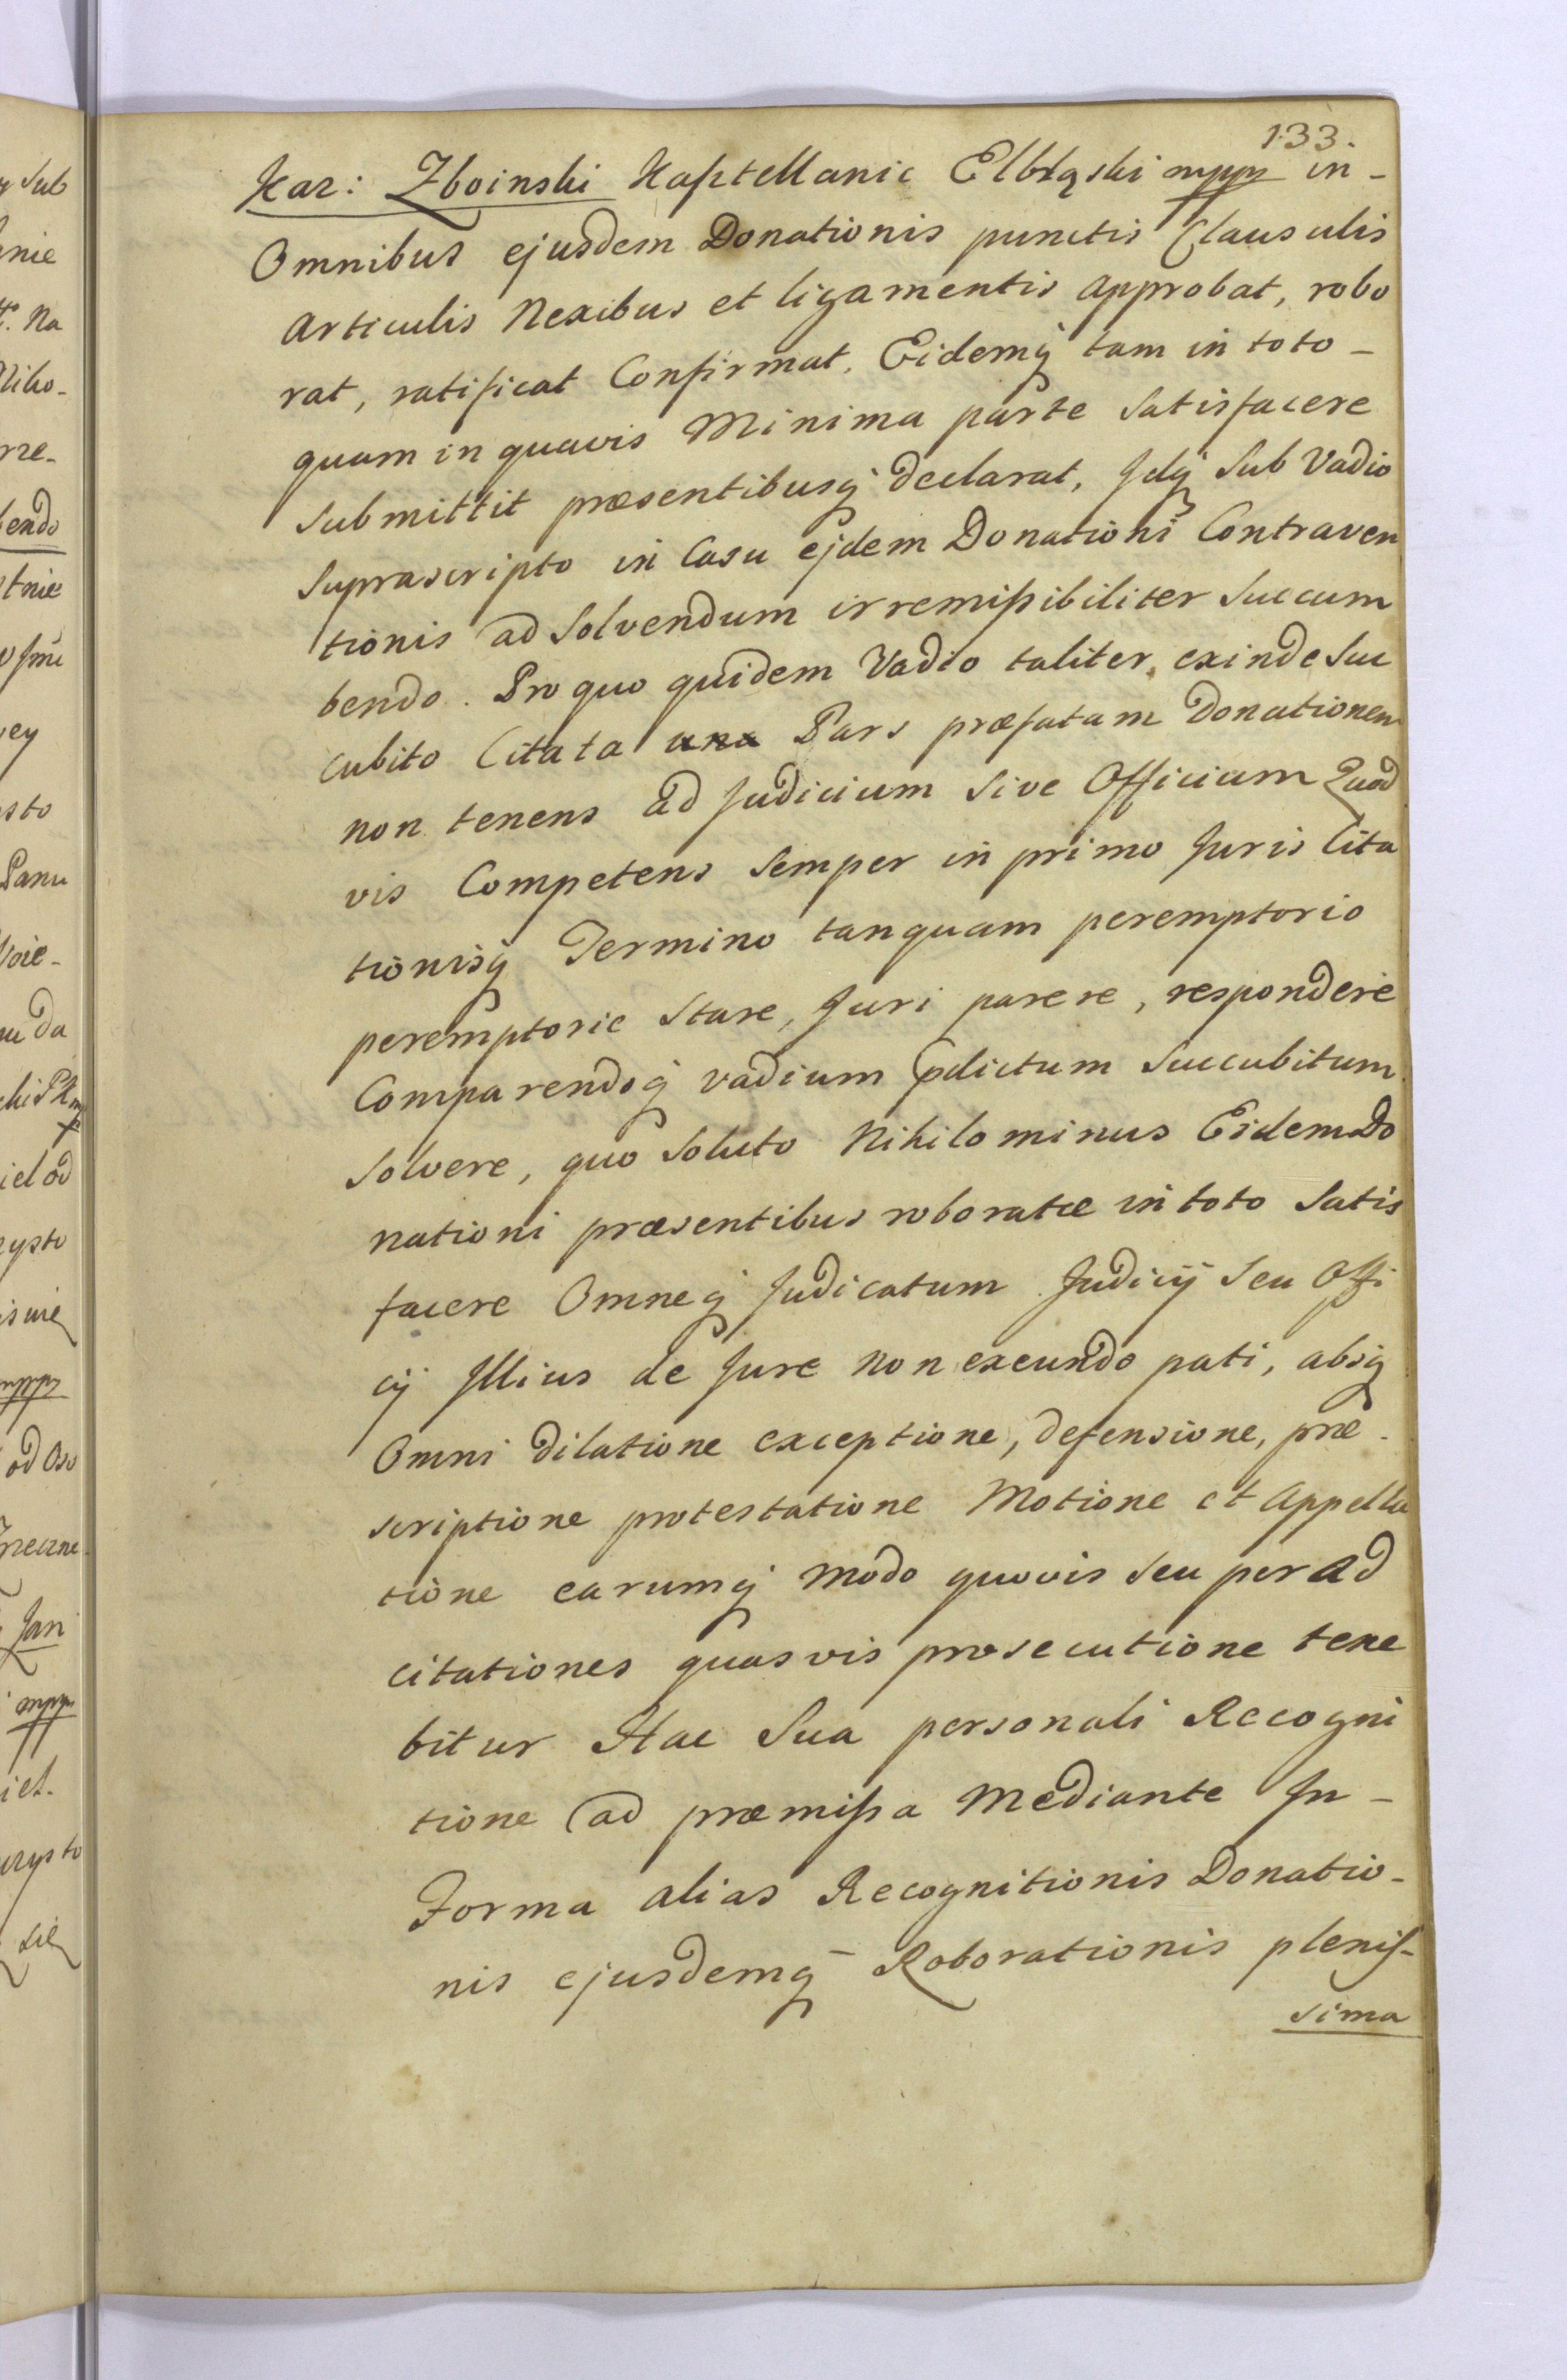 133.
Kar: Zboinski Kasztellanic Elbląski mpp in-
Omnibus ejusdem Donationis punctis Clausulis
Articulis Nexibus et ligamentis approbat, robo
rat, ratificat Confirmat, Eidemq tam in toto-
quam in quavis Minima parte Satisfacere
Submittit præsentibusq declarat, Idq Sub Vadio
Suprascripto in Casu ejdem Donationi Contraven
tionis ad Solvendum irremissibiliter Succum
bendo. Pro quo quidem Vadio taliter, exinde Suc
cubito Citata Pars præfatam Donationem
non tenens ad Judicium Sive Officium Quod
vis Competens Semper in primo Juris Cita
tionisq Termino tanquam peremptorio
peremptorie Stare, Juri parere, respondere
Comparendoq vadium pdictum Succubitum
Solvere, quo Soluto Nihilominus Eidem Do
nationi præsentibus roboratæ in toto Satis
facere Omneq Judicatum Judicij Seu Offi
cij Illius de Jure non exeundo pati, absq
Omni dilatione exceptione, defensione, præ-
scriptione protestatione Motione et Appella
tione earumq modo quovis Seu per ad
citationes quasvis prosecutione tene
bitur Hac Sua personali Recogni
tione ad præmissa Mediante In-
Forma alias Recognitionis Donatio-
nis ejusdemq Roborationis plenis-
sima